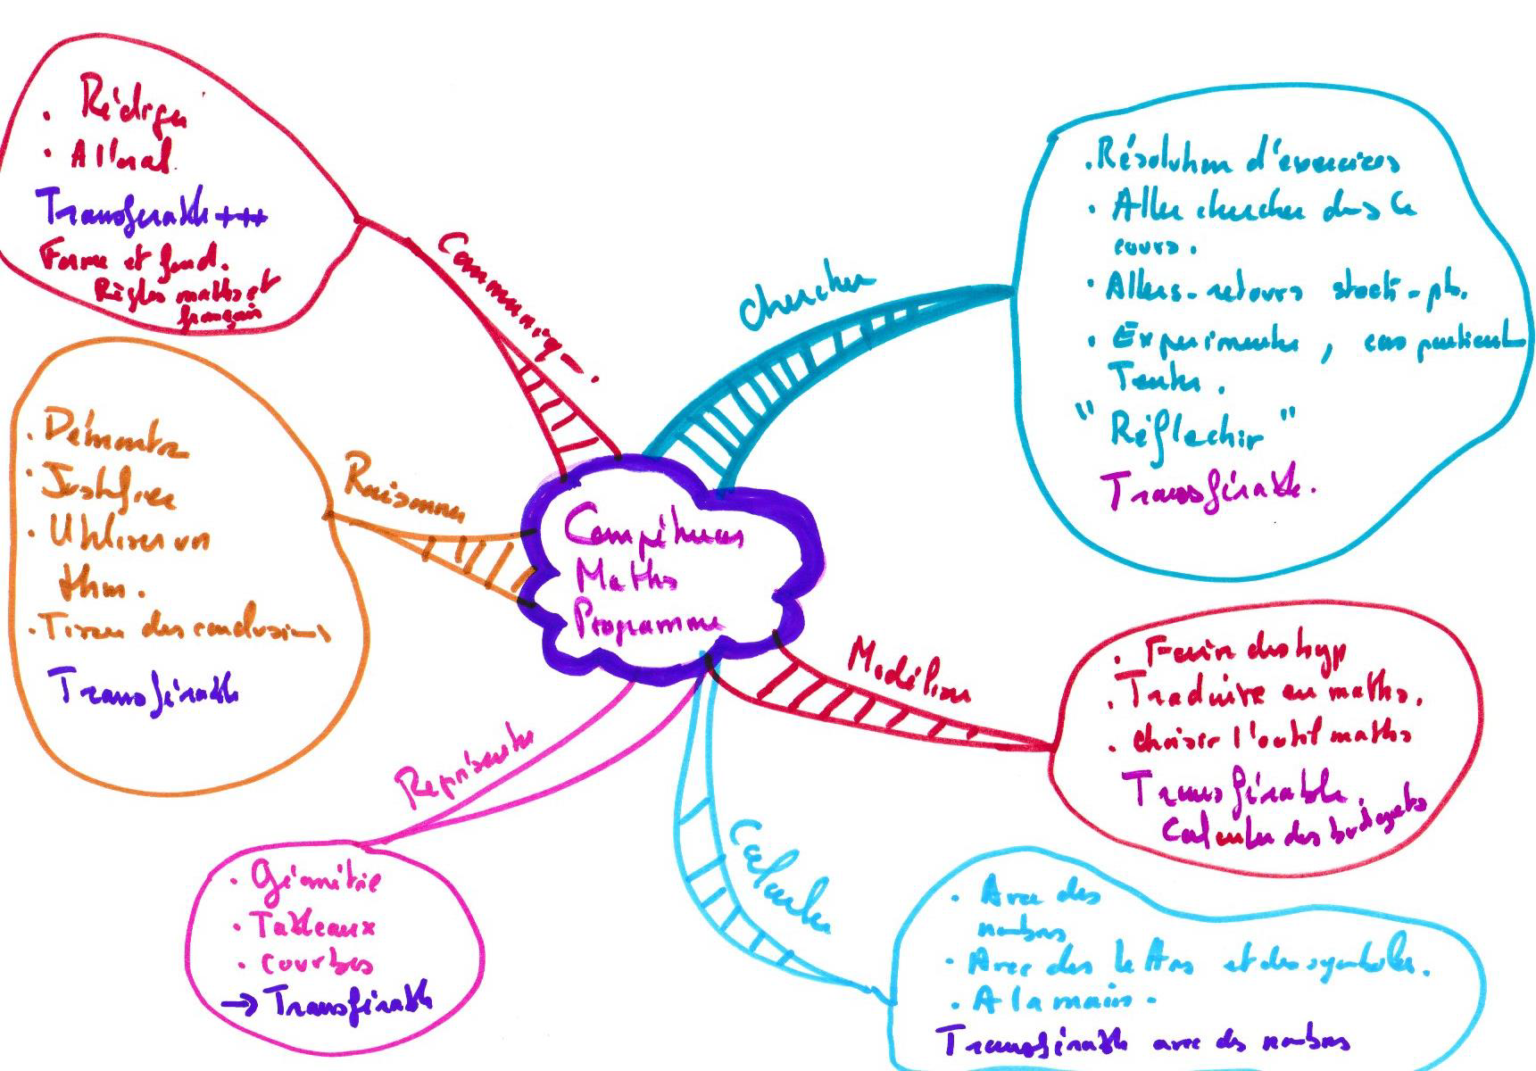 Compétences
Maths
Programme
Communiq-.
. Rédiger
. A l'oral.
Transférable +++
Forme et fond.
Règles maths et
français
Chercher
. Résolution d'exercices
. Aller chercher dans le
cours.
. Allers-retours stock-pb.
. Experimenter, cas particul
Tenter.
"Réflechir"
Transférable.
Raisonner
. Démontrer
. Justifier
. Utiliser un
thm.
. Tirer des conclusions
Transférable
Modéliser
. Faire des hyp
. Traduire en maths.
. choisir l'outil maths
Transférable.
Calculer des budgets
Représenter
. Géométrie
. Tableaux
. courbes
→ Transférable
Calculer
. Avec des
nombres
. Avec des lettres et des symboles.
. A la main.
Transférable avec des nombres